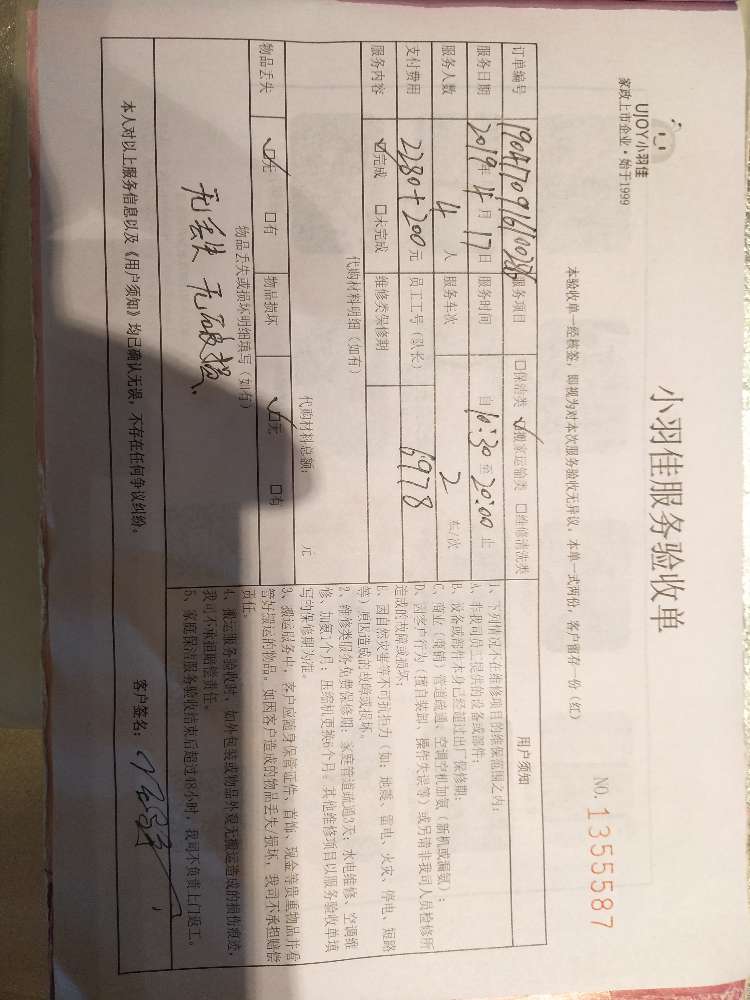 UJOY小羽佳
家政上市企业·始于1999
小羽佳服务验收单
NO. 1355587
本验收单一经核签，即视为对本次服务验收无异议，本单一式两份，客户留存一份（红）
订单编号 服务项目 □保洁类 ☑搬家运输类 □维修清洗类
服务日期 2019年4月17日 服务时间 自16:30至20:00止
服务人数 4人 服务车次 2车/次
支付费用 2280+200元 员工工号（队长） 6978
服务内容 ☑完成 □未完成 维修类保修期
代购材料明细（如有）
代购材料总额： 元
物品丢失 ☑无 □有 物品损坏 ☑无 □有
物品丢失或损坏明细填写（如有）
无丢失 无破损.
用户须知
1、下列情况不在维修项目的维保范围之内：
A、非我司员工提供的设备或部件；
B、设备或部件本身已经超过出厂保修期；
C、商业（营销）管道疏通、空调空机加氨（新机或漏氨）；
D、因客户行为（擅自装卸、操作失误等）或另请非我司人员检修所
造成的故障或损坏；
E、因自然灾害等不可抗拒力（如：地震、雷电、火灾、停电、短路
等）原因造成的故障或损坏。
2、维修类服务免费保修期：家庭管道疏通3天；水电维修、空调维
修、加氨1个月；压缩机更换6个月。其他维修项目以服务验收单填
写的保修期为准。
3、搬运服务中，客户应随身保管证件、首饰、现金等贵重物品并看
管好搬运的物品。如因客户造成的物品丢失/损坏，我司不承担赔偿
责任。
4、搬运服务验收时，如外包装或物品外观无搬运造成的损伤痕迹，
我司不承担赔偿责任。
5、家庭保洁服务验收结束后超过48小时，我司不负责上门返工。
本人对以上服务信息以及《用户须知》均已确认无误，不存在任何争议纠纷。
客户签名：